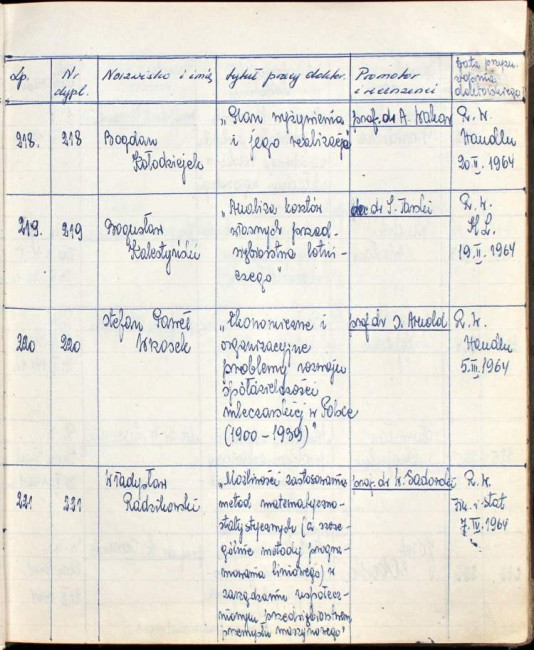 Lp.
Nr
dypl.
Nazwisko i imię
tytuł pracy doktor.
Promotor
i recenzenci
Data przyzn.
doktorskiego
218.
218
Bogdan
Kołodziejek
„Plan wyżywienia
i jego realizacja"
prof. dr A. Wakar
R. W.
Handlu
20 II. 1964
219.
219
Bogusław
Kalestyński
„Analiza kosztów
własnych przed-
siębiorstwa lotni-
czego"
doc dr S. Tarski
R. W.
19. II. 1964
220
220
Stefan Paweł
Wrzosek
„Ekonomiczne i
organizacyjne
problemy rozwoju
spółdzielczości
mleczarskiej w Polsce
(1900-1939)"
prof dr J. Arnold
R. W.
Handlu
5. III. 1964
221
221
Władysław
Radzikowski
„Możliwości zastosowania
metod matematyczno-
statystycznych (a szcze-
gólnie metody progra-
mowania liniowego) w
zarządzaniu współczes-
nym przedsiębiorstwem
przemysłu maszynowego"
prof. dr W. Sadowski
R. W.
Fin. i Stat
7. IV. 1964